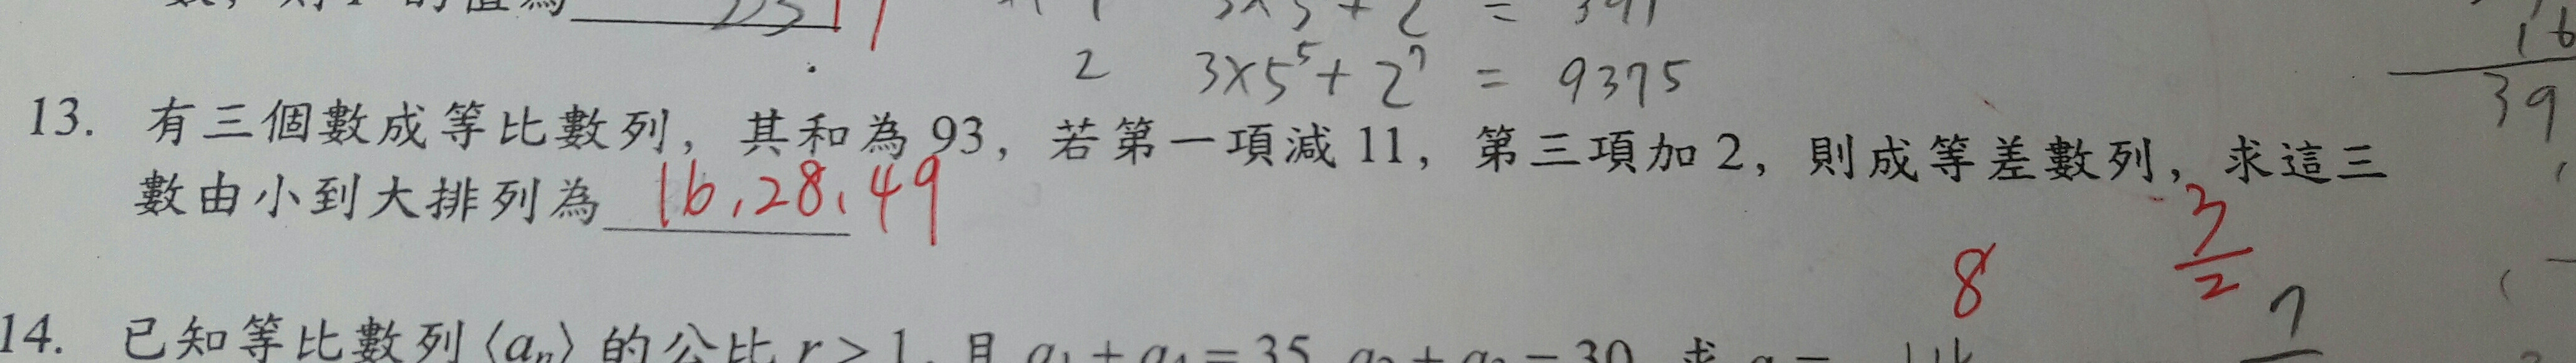 3×5 + 2 = 391
2 3×5⁵+2⁷ = 9375
16
39
13. 有三個數成等比數列，其和為 93，若第一項減 11，第三項加 2，則成等差數列，求這三
數由小到大排列為 16,28,49
8 3/2
7
14. 已知等比數列⟨aₙ⟩的公比 r > 1，且 a₁ + a₄ = 35，a₂ + a₃ = 30，求